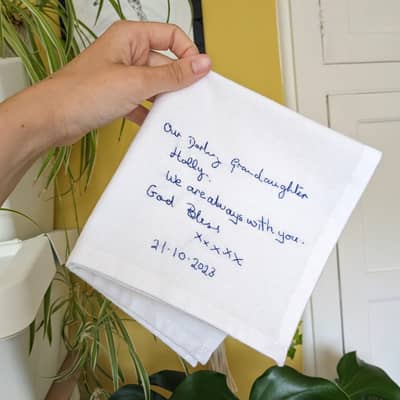 Our Darling Grandaughter
Holly.
We are always with you.
God Bless
xxxxx
21-10-2023